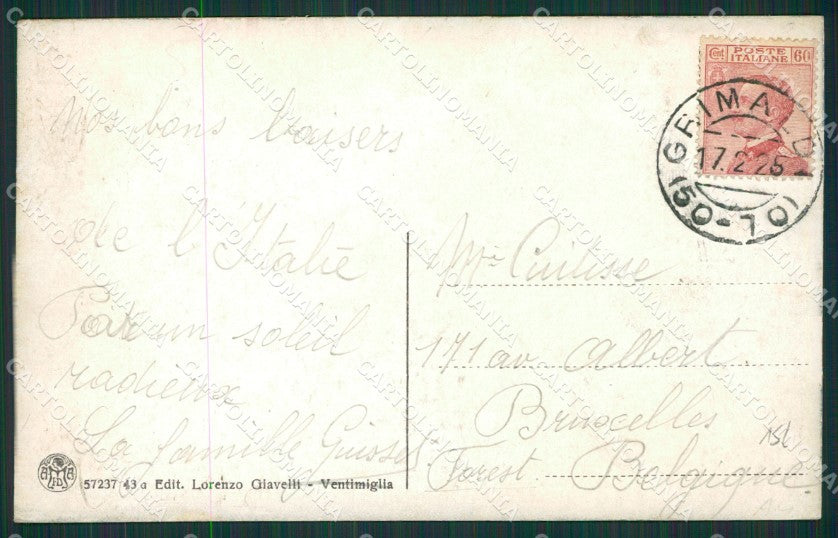 Nos bons baisers
de l'Italie
Par un soleil
radieux
La famille
57237 43 a Edit. Lorenzo Giavelli - Ventimiglia
Cent POSTE ITALIANE 60
GRIMALDI
17.2.25
(50-70)
171 av. Albert.
Bruxcelles
Forest. Belgique
CARTOLINOMANIA